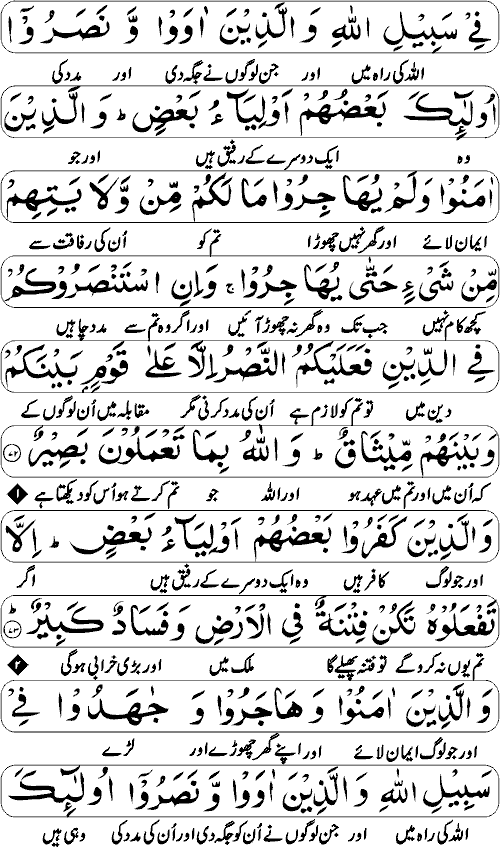 فِىۡ سَبِيۡلِ اللّٰهِ وَ الَّذِيۡنَ اٰوَوۡا وَّ نَصَرُوۡۤا
اللہ کی راہ میں اور جن لوگوں نے جگہ دی اور مدد کی
اُولٰٓئِكَ بَعۡضُهُمۡ اَوۡلِيَآءُ بَعۡضٍ‌ؕ وَالَّذِيۡنَ
وہ ایک دوسرے کے رفیق ہیں اور جو
اٰمَنُوۡا وَلَمۡ يُهَاجِرُوۡا مَا لَـكُمۡ مِّنۡ وَّلَايَتِهِمۡ
ایمان لائے اور گھر نہیں چھوڑا تم کو اُن کی رفاقت سے
مِّنۡ شَىۡءٍ حَتّٰى يُهَاجِرُوۡا‌ۚ وَاِنِ اسۡتَـنۡصَرُوۡكُمۡ
کچھ کام نہیں جب تک وہ گھر نہ چھوڑ آئیں اور اگر وہ تم سے مدد چاہیں
فِى الدِّيۡنِ فَعَلَيۡكُمُ النَّصۡرُ اِلَّا عَلٰى قَوۡمٍۢ بَيۡنَكُمۡ
دین میں تو تم کو لازم ہے اُن کی مدد کرنی مگر مقابلہ میں اُن لوگوں کے
وَبَيۡنَهُمۡ مِّيۡثَاقٌ‌ؕ وَاللّٰهُ بِمَا تَعۡمَلُوۡنَ بَصِيۡرٌ ‏﴿۷۲﴾
کہ اُن میں اور تم میں عہد ہو اور اللہ جو تم کرتے ہو اُس کو دیکھتا ہے ۱
وَالَّذِيۡنَ كَفَرُوۡا بَعۡضُهُمۡ اَوۡلِيَآءُ بَعۡضٍ‌ؕ اِلَّا
اور جو لوگ کافر ہیں وہ ایک دوسرے کے رفیق ہیں اگر
تَفۡعَلُوۡهُ تَكُنۡ فِتۡنَةٌ فِى الۡاَرۡضِ وَفَسَادٌ كَبِيۡرٌؕ ‏﴿۷۳﴾
تم یوں نہ کرو گے تو فتنہ پھیلے گا ملک میں اور بڑی خرابی ہو گی ۲
وَالَّذِيۡنَ اٰمَنُوۡا وَهَاجَرُوۡا وَ جٰهَدُوۡا فِىۡ
اور جو لوگ ایمان لائے اور اپنے گھر چھوڑے اور لڑے
سَبِيۡلِ اللّٰهِ وَالَّذِيۡنَ اٰوَوْا وَّنَصَرُوۡۤا اُولٰۤئِكَ
اللہ کی راہ میں اور جن لوگوں نے اُن کو جگہ دی اور اُن کی مدد کی وہی ہیں